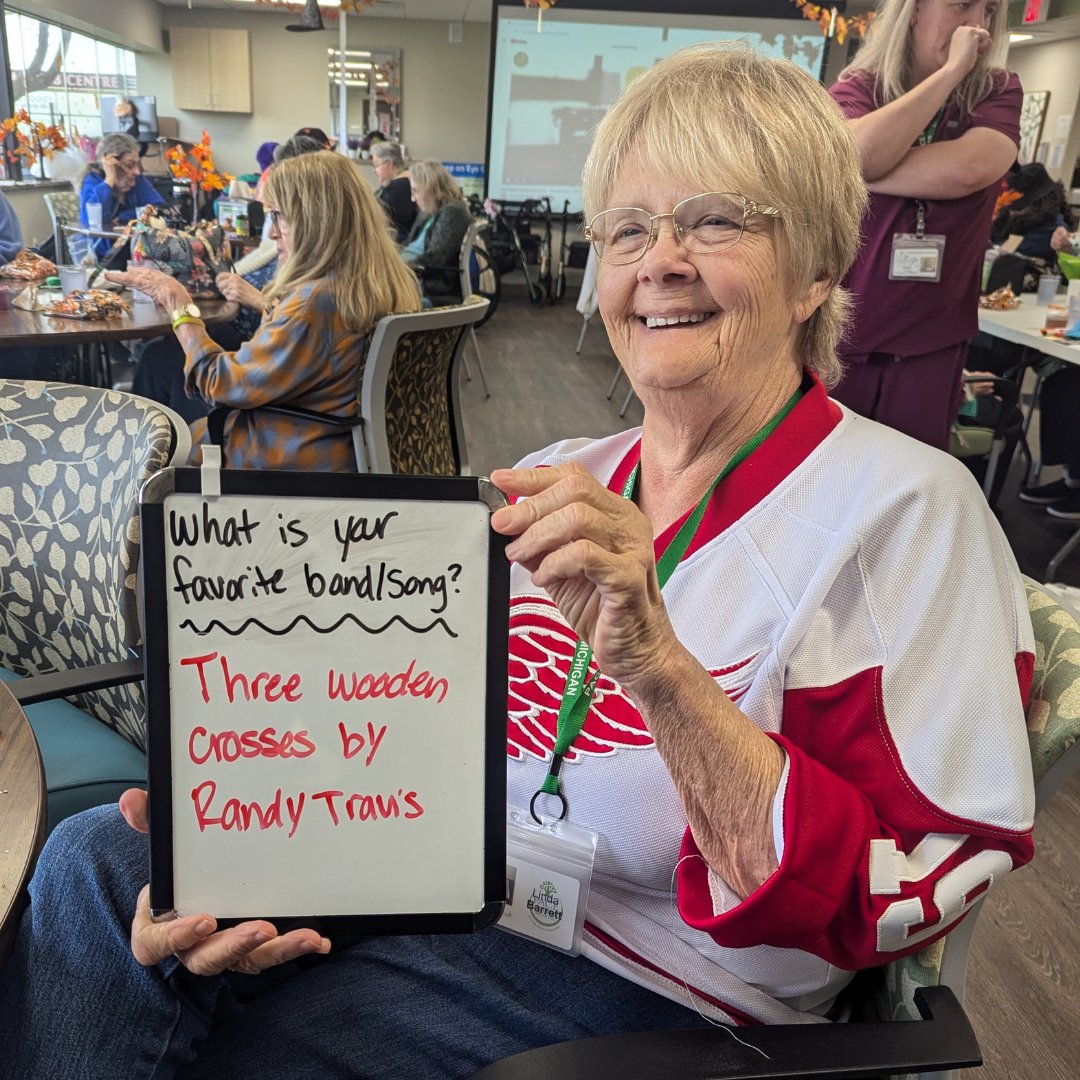 What is your
favorite band/song?
Three wooden
crosses by
Randy Travis
MICHIGAN
Linda
Barrett
19
CENTRE
an Eye